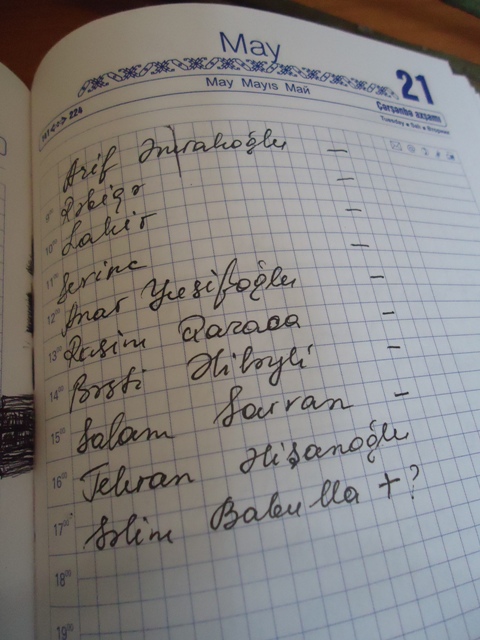 May
21
May Mayıs Май
141 <●> 224
Çərşənbə axşamı
Tuesday ● Salı ● Вторник
Arif Əmrahoğlu –
9⁰⁰ Rəbiqə –
10⁰⁰ Lahir –
11⁰⁰ Sevinc –
12⁰⁰ Anar Yusifoğlu –
13⁰⁰ Rasim Qaraca –
14⁰⁰ Əlibəyli –
15⁰⁰ Salam Sarvan –
16⁰⁰ Tehran Əlişanoğlu
17⁰⁰ Səlim Babulla +?
18⁰⁰
19⁰⁰